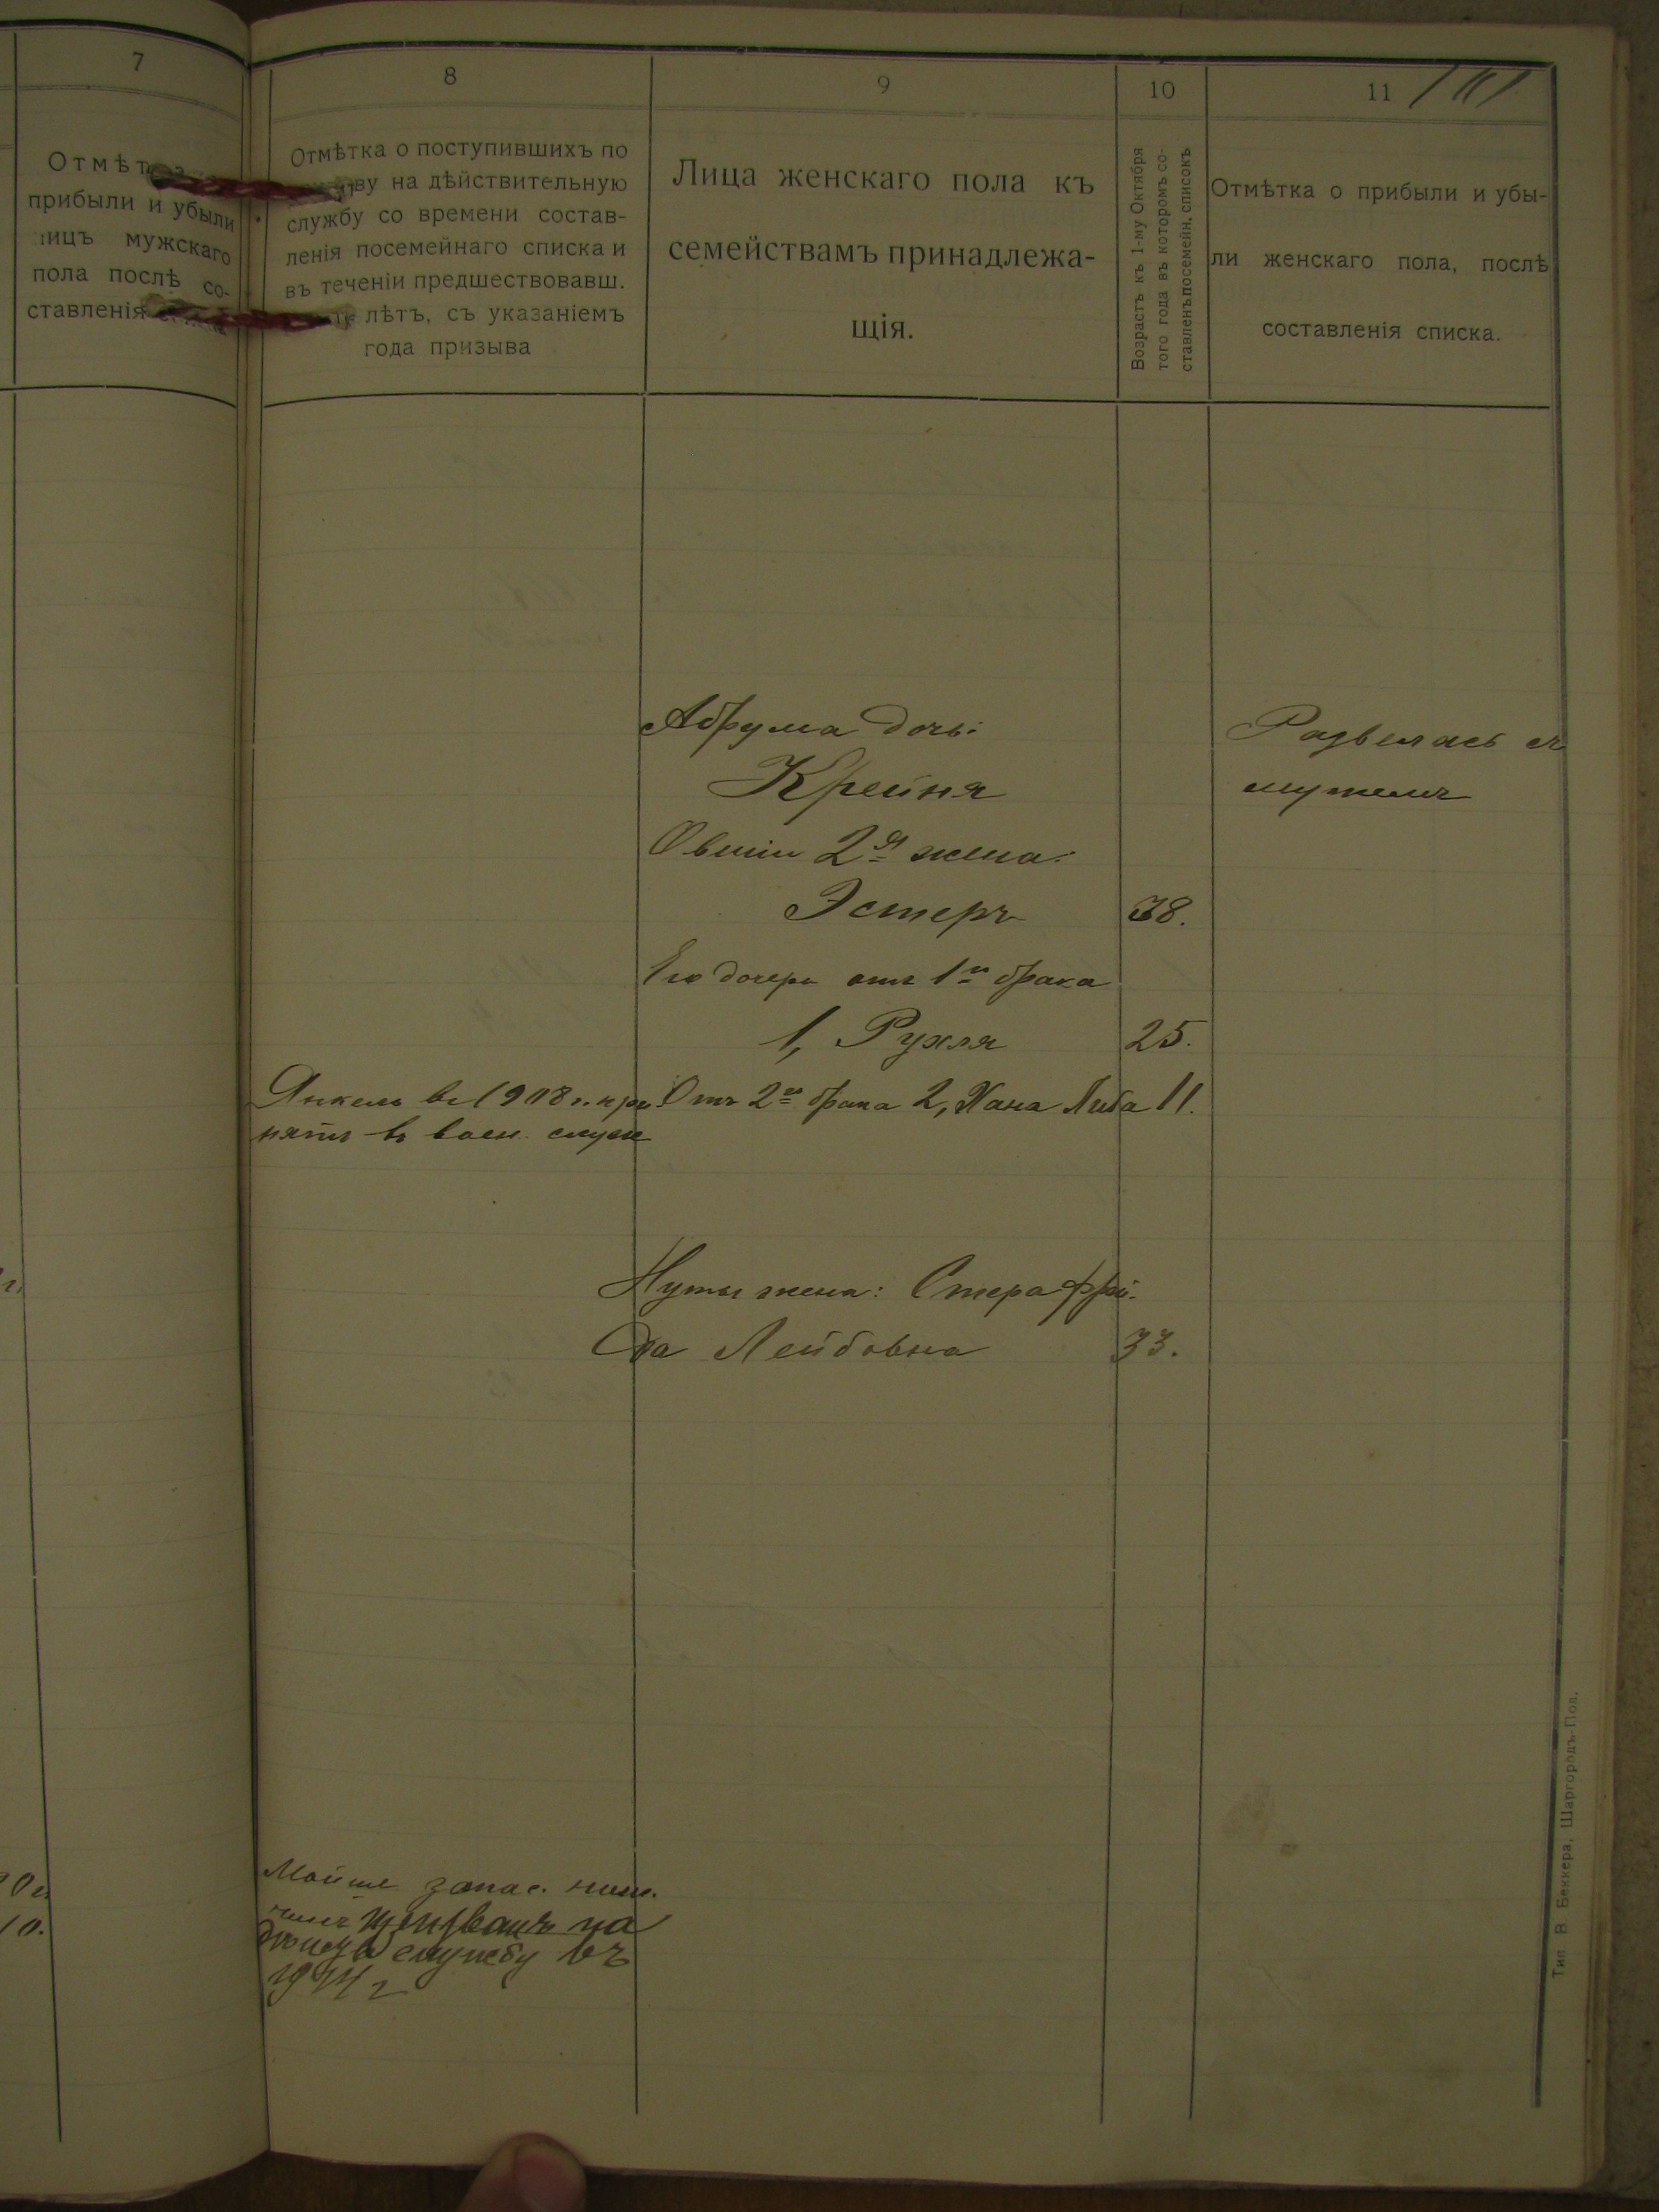 7
Отмѣтка
прибыли и убыли
лицъ мужскаго
пола послѣ со-
ставленія
8
Отмѣтка о поступившихъ по
ву на дѣйствительную
службу со времени состав-
ленія посемейнаго списка и
въ теченіи предшествовавш.
лѣтъ, съ указаніемъ
года призыва
9
Лица женскаго пола къ
семействамъ принадлежа-
щія.
10
Возрастъ къ 1-му Октября
того года въ которомъ со-
ставленъ посемейн. списокъ
11
Отмѣтка о прибыли и убы-
ли женскаго пола, послѣ
составленія списка.
Абрума дочь:
Крейня
Развелась съ
мужемъ
Овшіи 2я жена:
Эстеръ 38.
Его дочери отъ 1го брака
1, Рухля 25.
Янкель въ 1908 г. при
нятъ въ воен. служ
Отъ 2го брака 2, Хана Либа 11.
Нуты жена: Стера Фрей-
да Лейбовна 33.
Мойше запас. ниж.
чинъ на
службу въ
1914 г
Тип. В Беккера, Шаргородъ-Под.